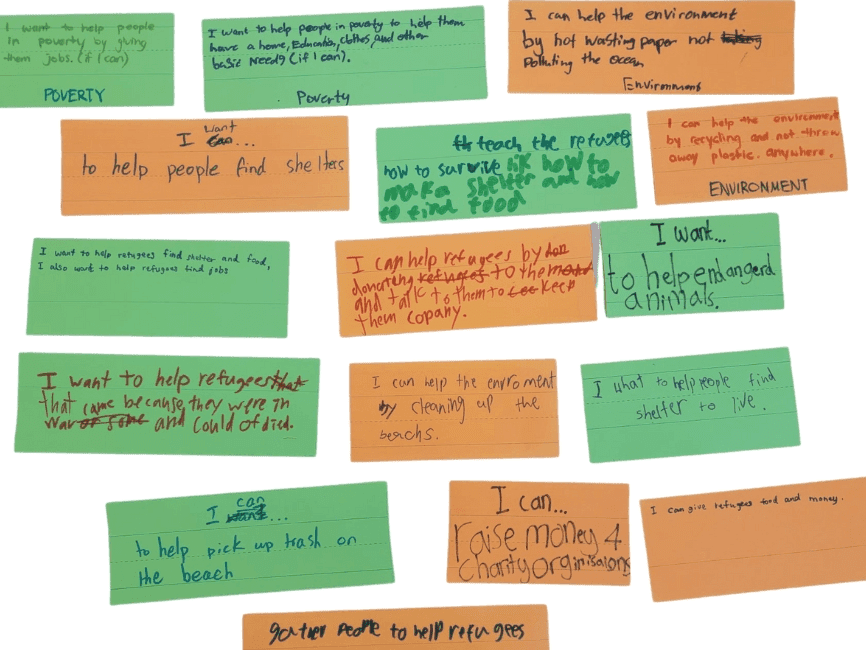 I want to help people
in poverty by giving
them jobs. (if I can)
POVERTY
I want to help people in poverty to help them
have a home, Education, clothes, and other
basic needs (if I can).
Poverty
I can help the environment
by not wasting paper not
Polluting the ocean
Environment
I want ...
to help people find shelters
teach the refugees
how to survive lik how to
mak a shelter and how
to find food
I can help the environment
by recycling and not throw
away plastic. anywhere.
ENVIRONMENT
I want to help refugees find shelter and food,
I also want to help refugees find jobs
I can help refugees by
donating refugees to them
and talk to them to keep
them copany.
I want...
to help endangerd
animals.
I want to help refugees that
that came because they were in
war and could of died.
I can help the enviroment
by cleaning up the
beachs.
I what to help people find
shelter to live.
I can ...
to help pick up trash on
the beach
I can...
raise money 4
charity orginisaions
I can give refugees food and money.
gather people to help refugees